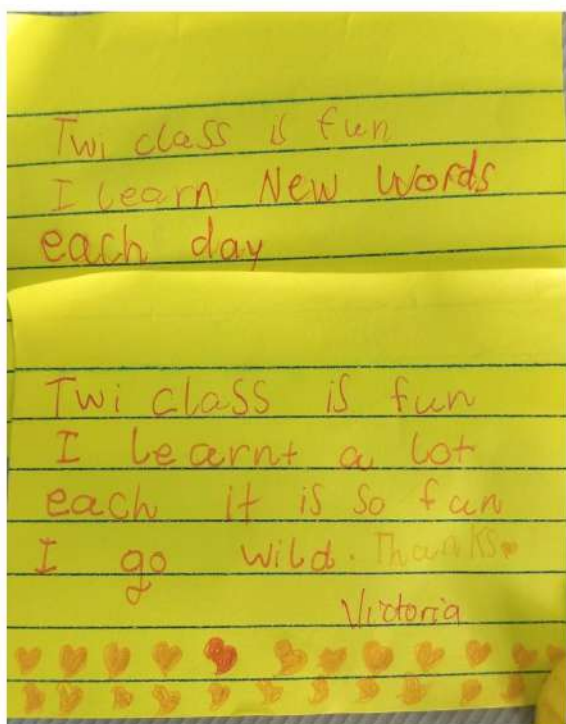 Twi class is fun
I learn New Words
each day
Twi class is fun
I learnt a lot
each it is so fun
I go wild. Thanks
Victoria